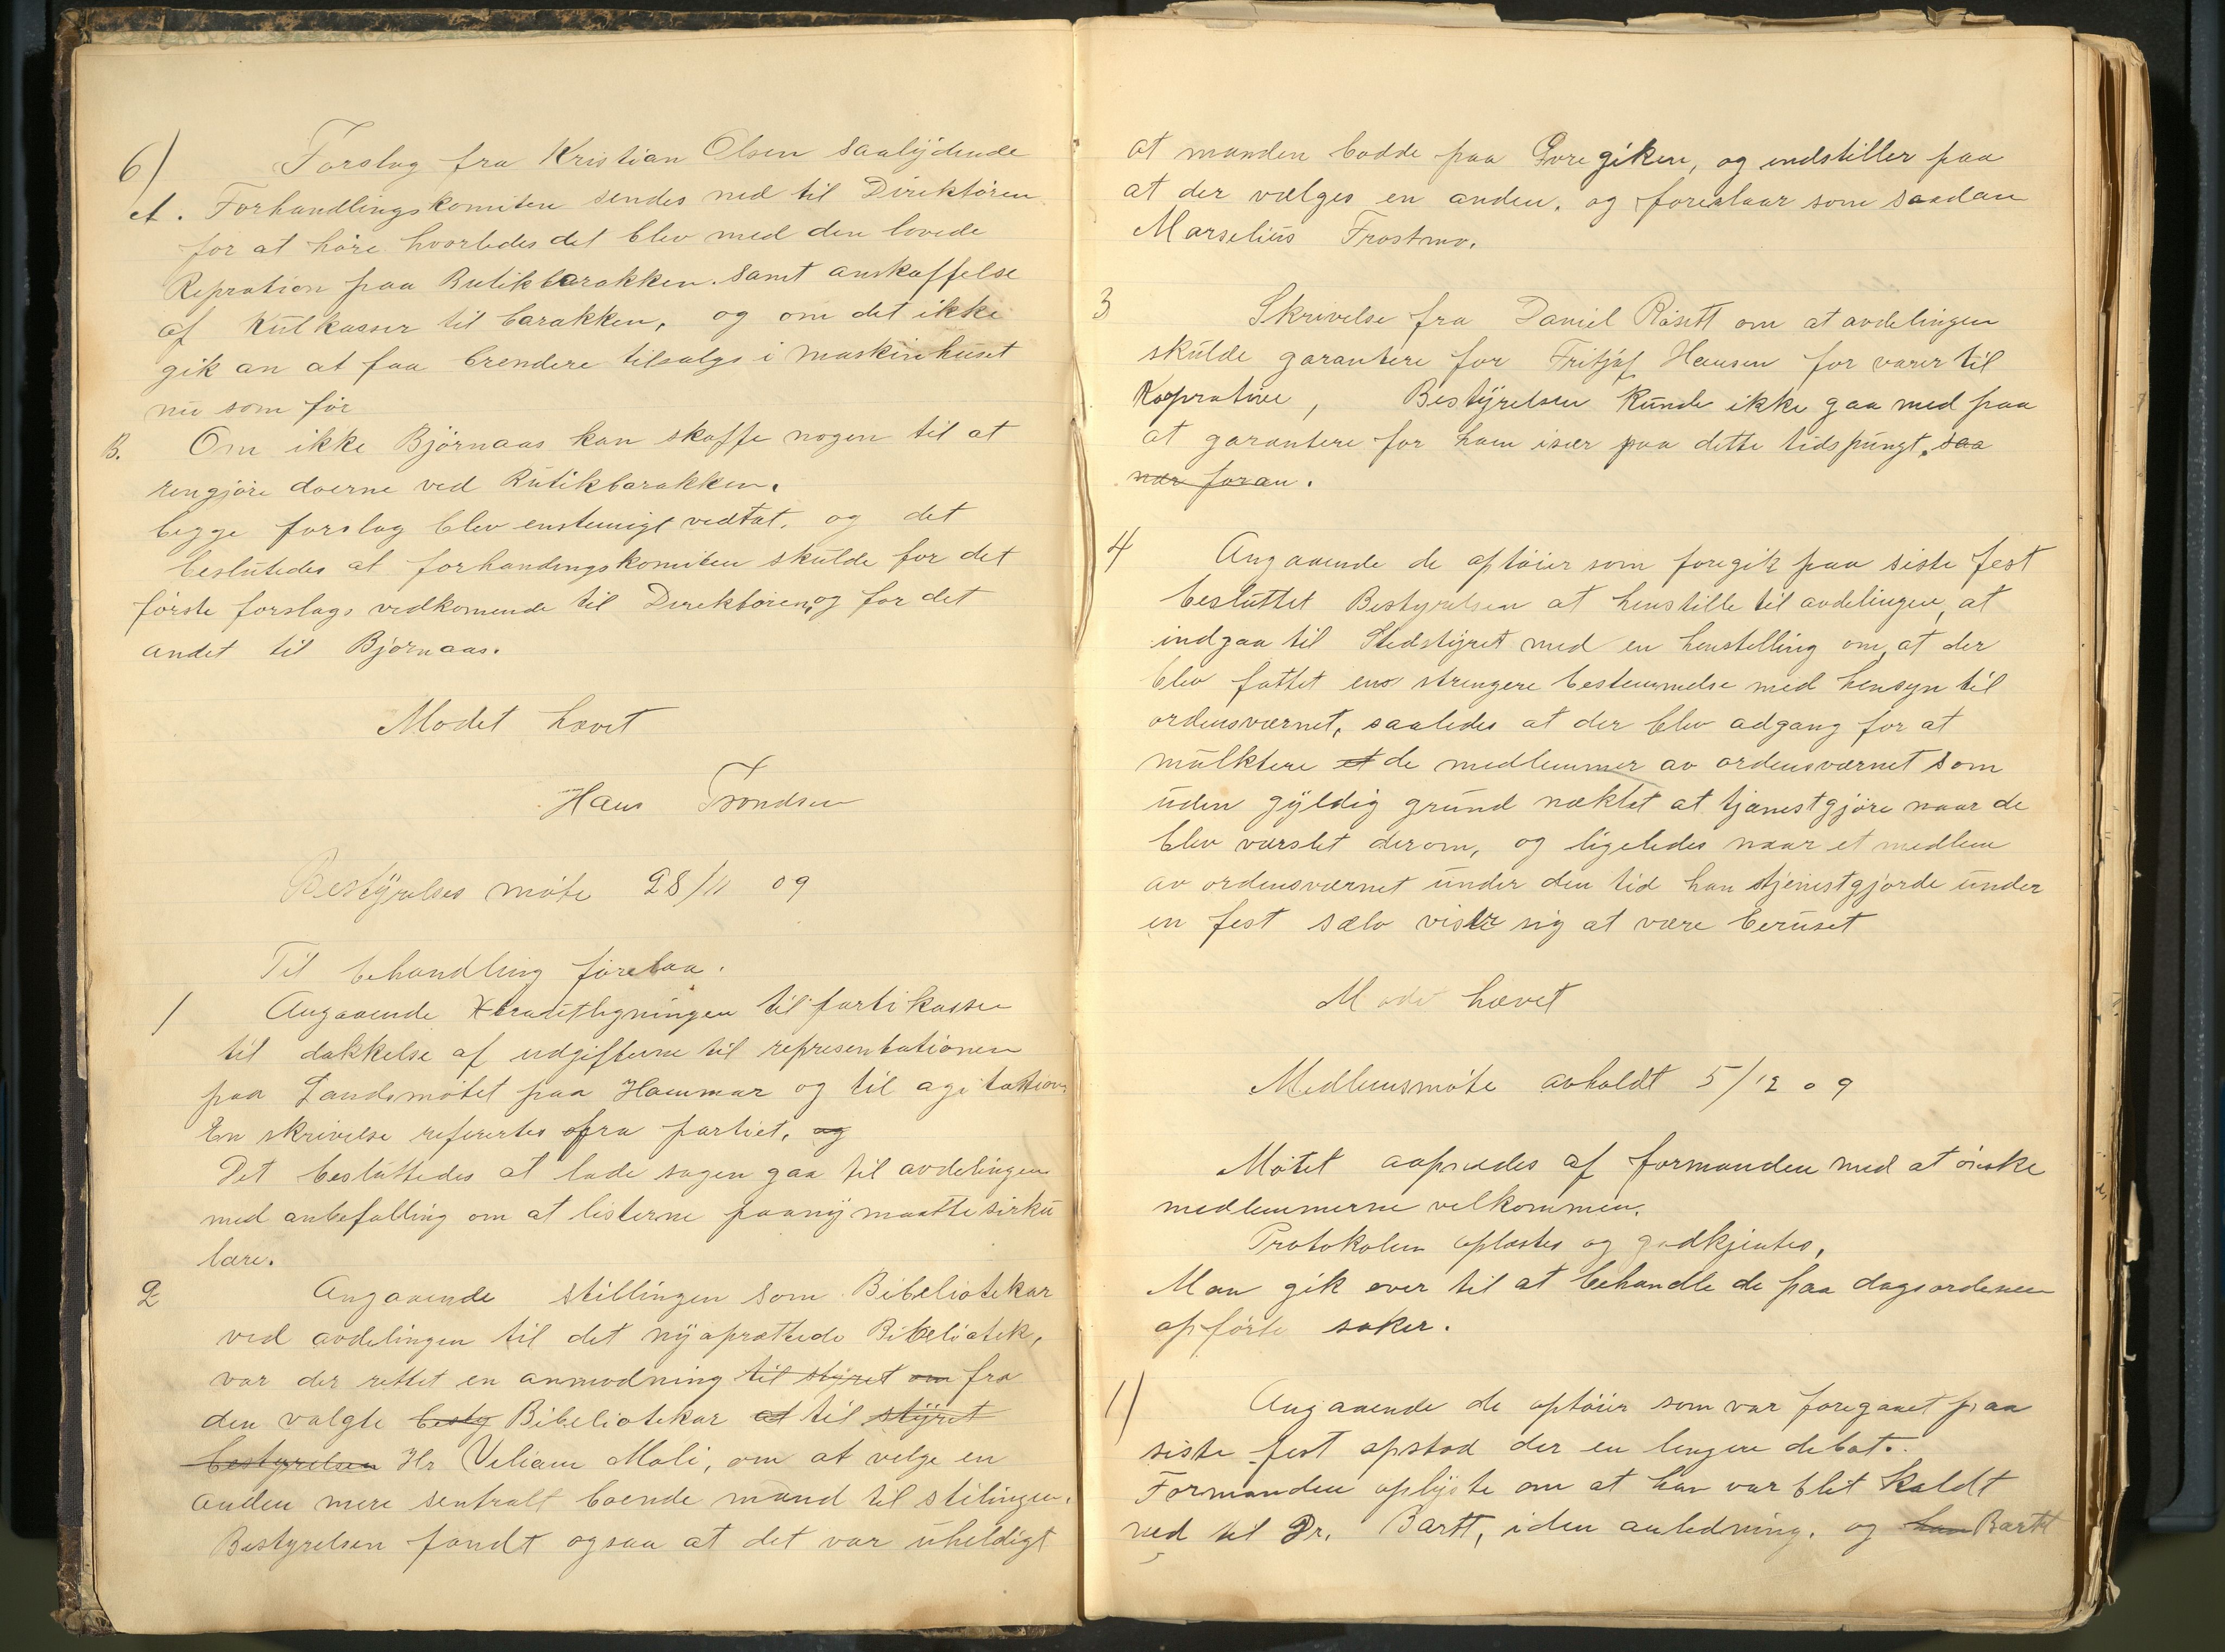 6) Forslag fra Kristian Olsen saalydende
A. Forhandlingskomiten sendes ned til Direktören
for at höre hvorledes det blev med den lovede
Repration paa Butikbarakken. samt anskaffelse
af Kulkasser til barakken, og om det ikke
gik an at faa brendere tilsalgs i maskinhuset
nu som för
B. Om ikke Björnaas kan skaffe nogen til at
rengjöre doerne ved Butikbarakken.
begge forslag blev enstemigt vedtat. og det
beslutedes at forhandingskomiten skulde for det
förste forslags vedkomende til Direktören, og for det
andet til Björnaas.
Modet hævet
Hans Trondsen
Bestyrelses möte 28/11 09
Til behandling forelaa.
1 Angaaende Xtrautligningen til partikassen
til dækkelse af udgifterne til representationen
paa Landsmötet paa Hammar og til agitattion.
En skrivelse refertes fra partiet. og
Det besluttedes at lade sagen gaa til avdelingen
med anbefalling om at listerne paany maatte sirku
lære.
2 Angaaende stillingen som Bibeliotekar
ved avdelingen til det nyoprættede Bibeliotek,
var der rettet en anmodning til styret om fra
den valgte besty Bibeliotekar at til styret
bestyrelsen Hr Veliam Moli, om at velge en
anden mere sentralt boende mand til stilingen.
Bestyrelsen fandt ogsaa at det var uheldigt
at manden bodde paa giken, og indstiller paa
at der vælges en anden. og foreslaar som saadan
Marselius Frostmo.
3 Skrivelse fra Daniel Rösett om at avdelingen
skulde garantere for Fritjof Hansen for varer til
Kooprative, Bestyrelsen kunde ikke gaa med paa
at garantere for ham især paa dette tidspungt. saa
nær foran.
4 Angaaende de optöier som foregik paa siste fest
besluttet Bestyrelsen at henstille til avdelingen, at
indgaa til Stedstyret med en henstelling om, at der
blev fattet en strengere bestemmelse med hensyn til
ordensværnet, saaledes at der blev adgang for at
mulktere et de medlemmer av ordensværnet som
uden gyldig grund næktet at tjænestgjöre naar de
blev varslet derom, og ligeledes naar et medlem
av ordensværnet under den tid han tjenestgjorde under
en fest sælv viste sig at være beruset
Modet hævet
Medlemsmöte avholdt 5/12 09
Mötet aapnedes af formanden med at önske
medlemmerne velkommen.
Protokolen oplæstes og godkjentes,
Man gik over til at behandle de paa dagsordenen
opförte saker.
1) Angaaende de optöier som var foregaaet paa
siste fest opstod der en lengere debat.
Formanden oplyste om at han var blit kaldt
ned til Dr. Bartt, i den anledning. og han Bartt